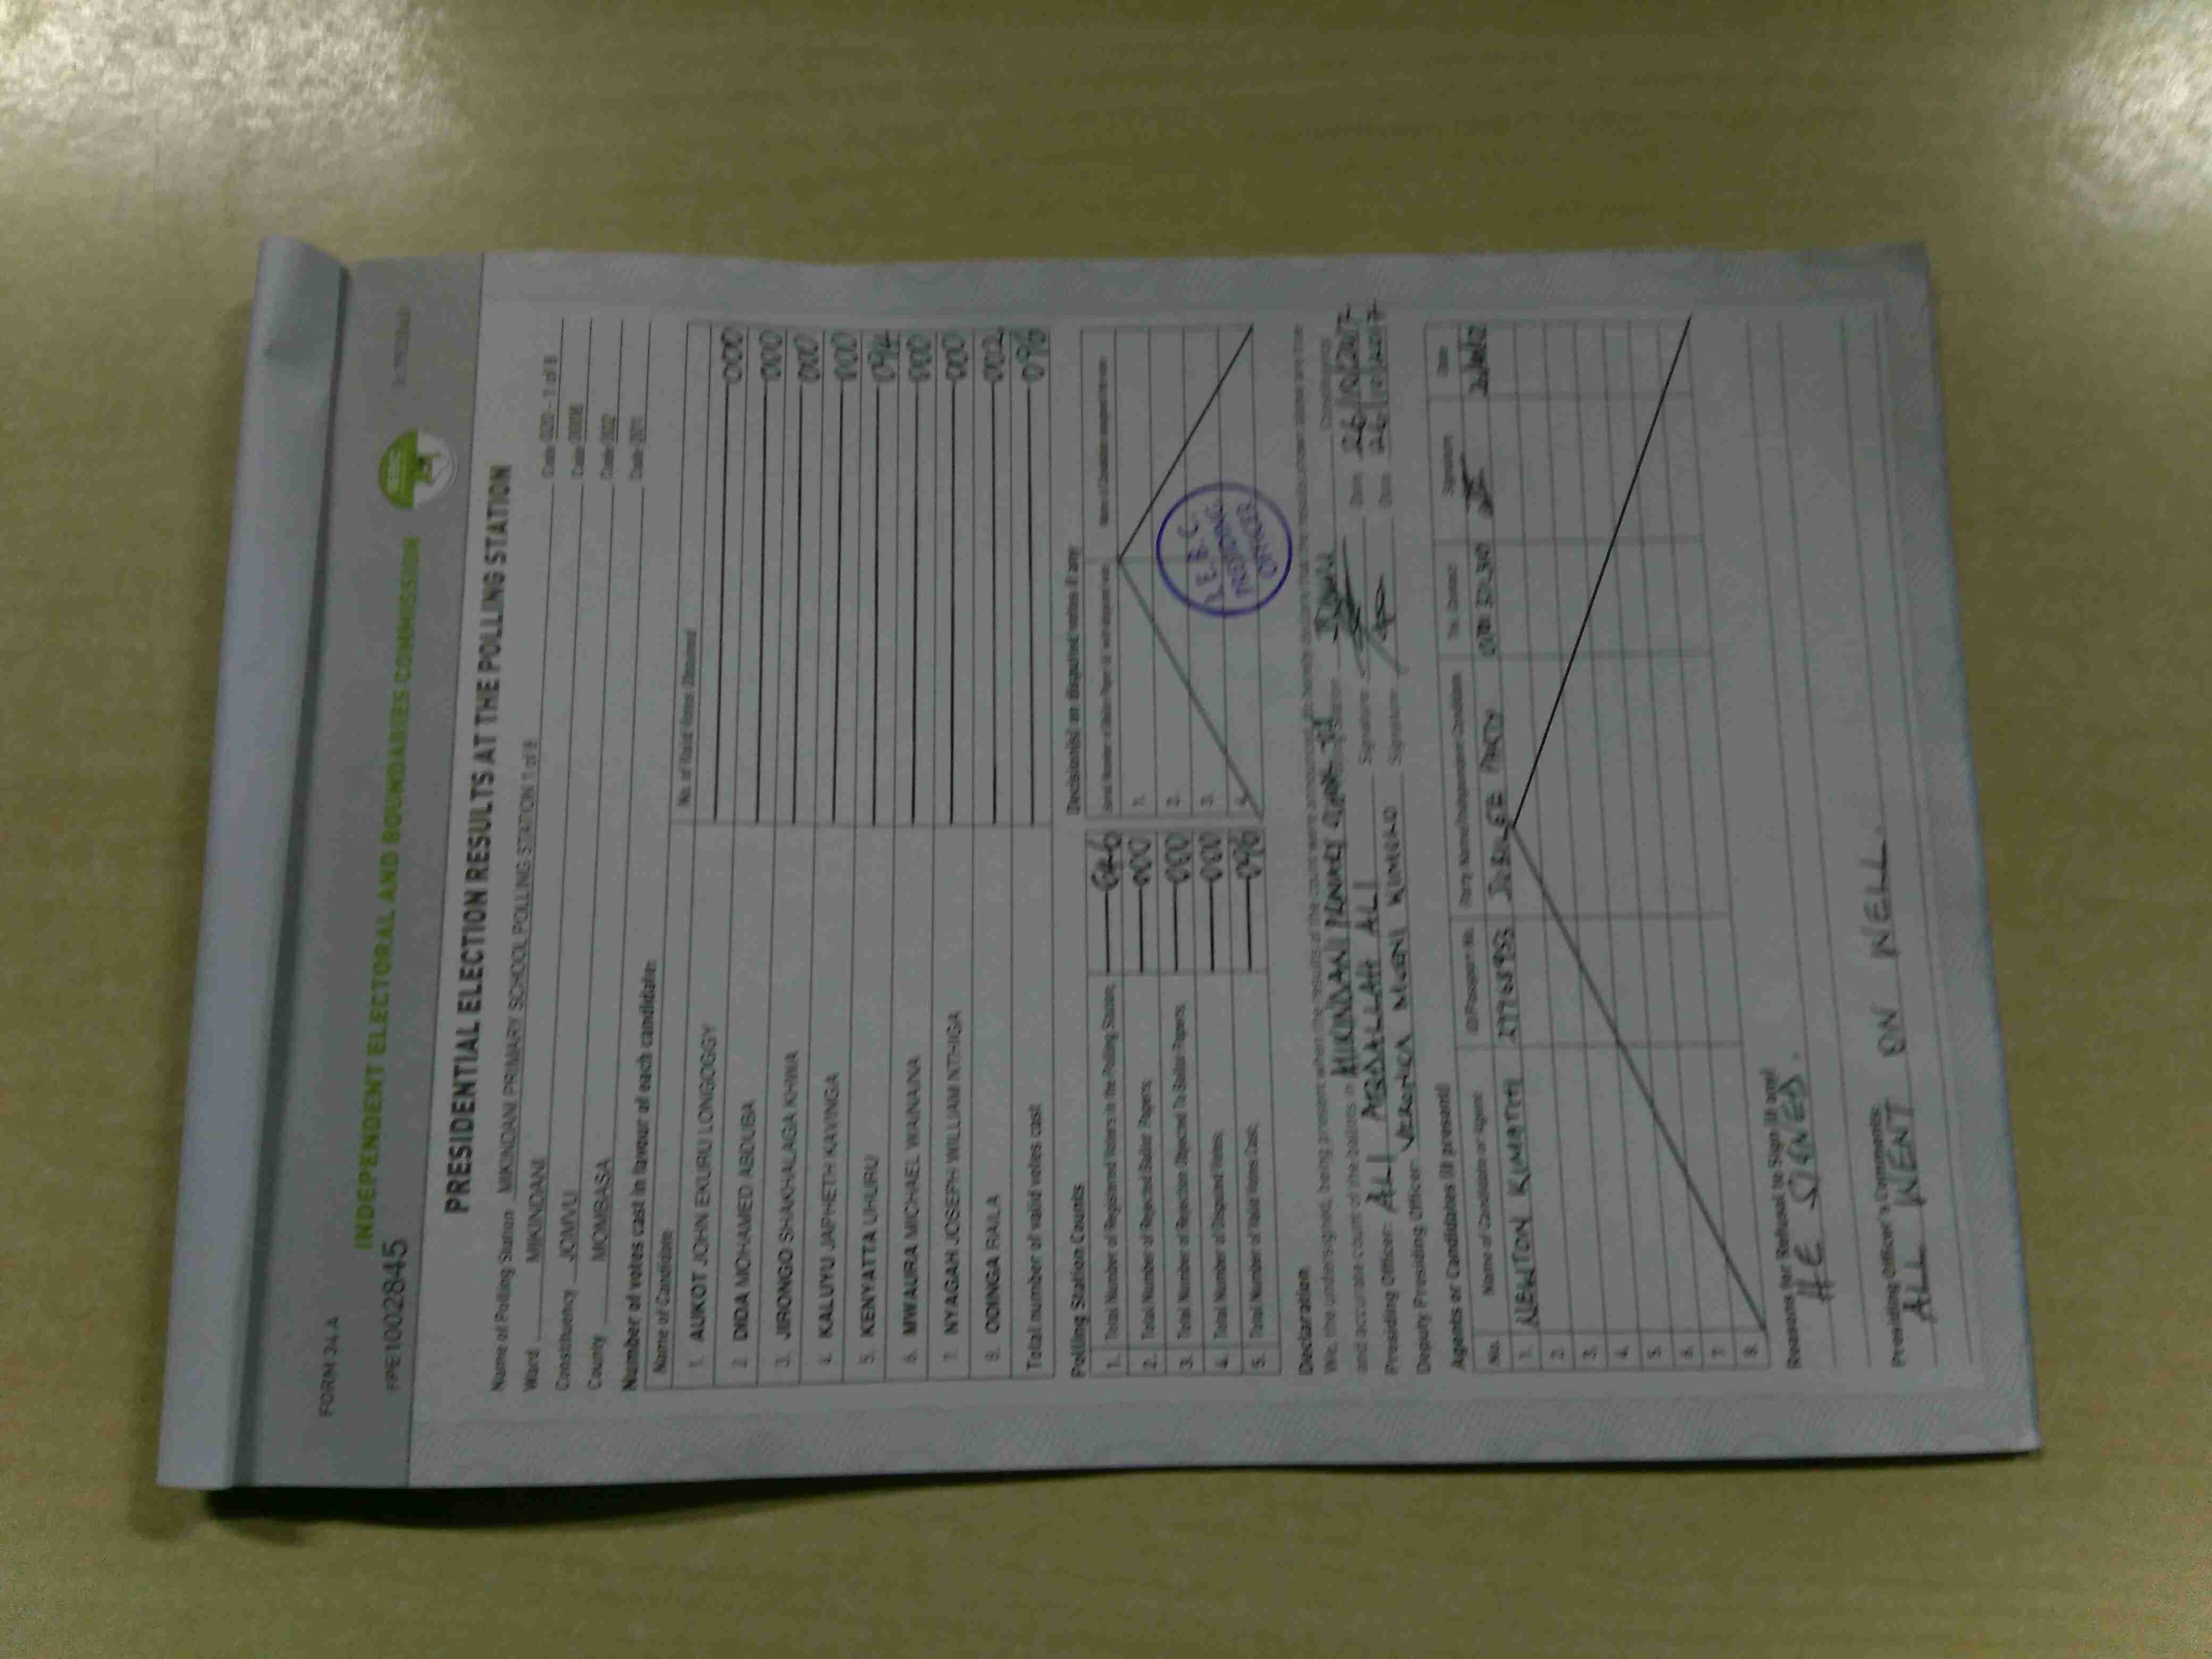 FORM 34 A
INDEPENDENT ELECTORAL AND BOUNDARIES COMMISSION
FPE1002845
PRESIDENTIAL ELECTION RESULTS AT THE POLLING STATION
Name of Polling Station MIKINDANI PRIMARY SCHOOL POLLING STATION 1 of 8 Code 020 - 1 of 8
Ward MIKINDANI Code 0008
Constituency JOMVU Code 002
County MOMBASA Code 001
Number of votes cast in favour of each candidate:
Name of Candidate No. of Valid Votes Obtained
1. AUKOT JOHN EKURU LONGOGGY 000
2. DIDA MOHAMED ABDUBA 000
3. JIRONGO SHAKHALAGA KHWA 000
4. KALUYU JAPHETH KAVINGA 000
5. KENYATTA UHURU 094
6. MWAURA MICHAEL WAINAINA 000
7. NYAGAH JOSEPH WILLIAM NTHIGA 000
8. ODINGA RAILA 002
Total number of valid votes cast 096
Polling Station Counts
1. Total Number of Registered Voters in the Polling Station;
2. Total Number of Rejected Ballot Papers; 000
3. Total Number of Rejection Objected To Ballot Papers; 000
4. Total Number of Disputed Votes; 000
5. Total Number of Valid Votes Cast; 096
Decision(s) on disputed votes if any
1.
2.
3.
4.
I.E.B.C
PRESIDING
OFFICER
Declaration
We, the undersigned, being present when the results of the count were announced, do hereby declare that the results shown above are true
and accurate count of the ballots in MIKINDANI PRIMARY
Presiding Officer: ALI ABDALLAH ALI Signature Date 26/10/2017
Deputy Presiding Officer: VERONICA MUENI KIMEKO Signature Date 26/10/2017
Agents or Candidates (if present)
No. Name of Candidate or Agent ID/Passport No. Party Name/Independent Candidate Tel. Contact Signature Date
1. NEWTON KIMATHI JUBILEE PARTY
2.
3.
4.
5.
6.
7.
8.
Reasons for Refusal to Sign (if any)
HE SIGNED.
Presiding Officer's Comments:
ALL WENT ON WELL.